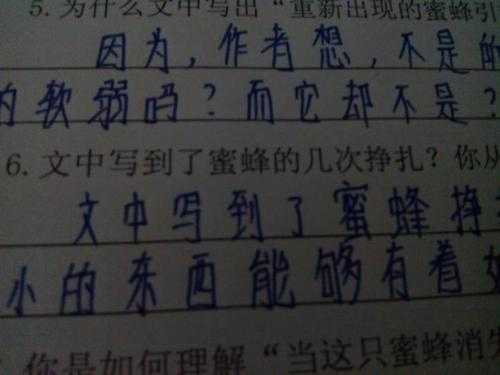 5. 为什么文中写出“重新出现的蜜蜂引
因为，作者想，不是的
的软弱吗？而它却不是？
6. 文中写到了蜜蜂的几次挣扎？你从
文中写到了蜜蜂挣
小的东西能够有着
你是如何理解“当这只蜜蜂消失